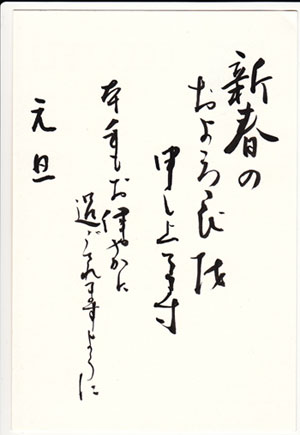 新春の
およろこびを
申し上げます
本年もお健やかに
過ごされますように
元旦